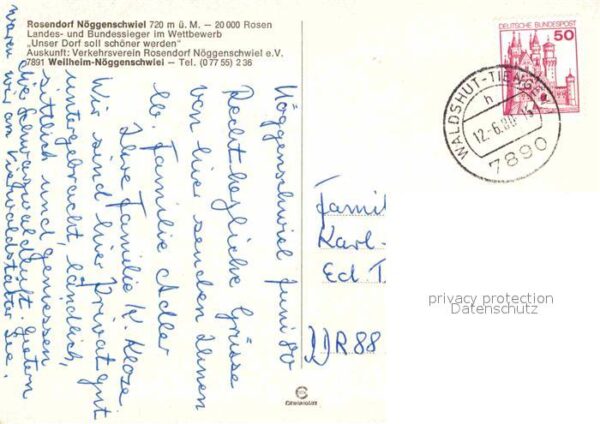 Rosendorf Nöggenschwiel 720 m ü. M. – 20 000 Rosen
Landes- und Bundessieger im Wettbewerb
„Unser Dorf soll schöner werden“
Auskunft: Verkehrsverein Rosendorf Nöggenschwiel e.V.
7891 Weilheim-Nöggenschwiel – Tel. (0 77 55) 2 36
Nöggenschwiel Juni 80
Recht herzliche Grüsse
von hier senden Ihnen
lb. Familie Adler
Ihre Familie K. Kloza
Wir sind hier Privat gut
untergebracht, ländlich,
sittlich und geniessen
die Schwarzwaldluft. Gestern
waren wir am Vierwaldstätter See.
DEUTSCHE BUNDESPOST
50
WALDSHUT-TIENGEN
h
12.-6.80
7890
Famil
Karl-
Ed. T
DDR 88
privacy protection
Datenschutz